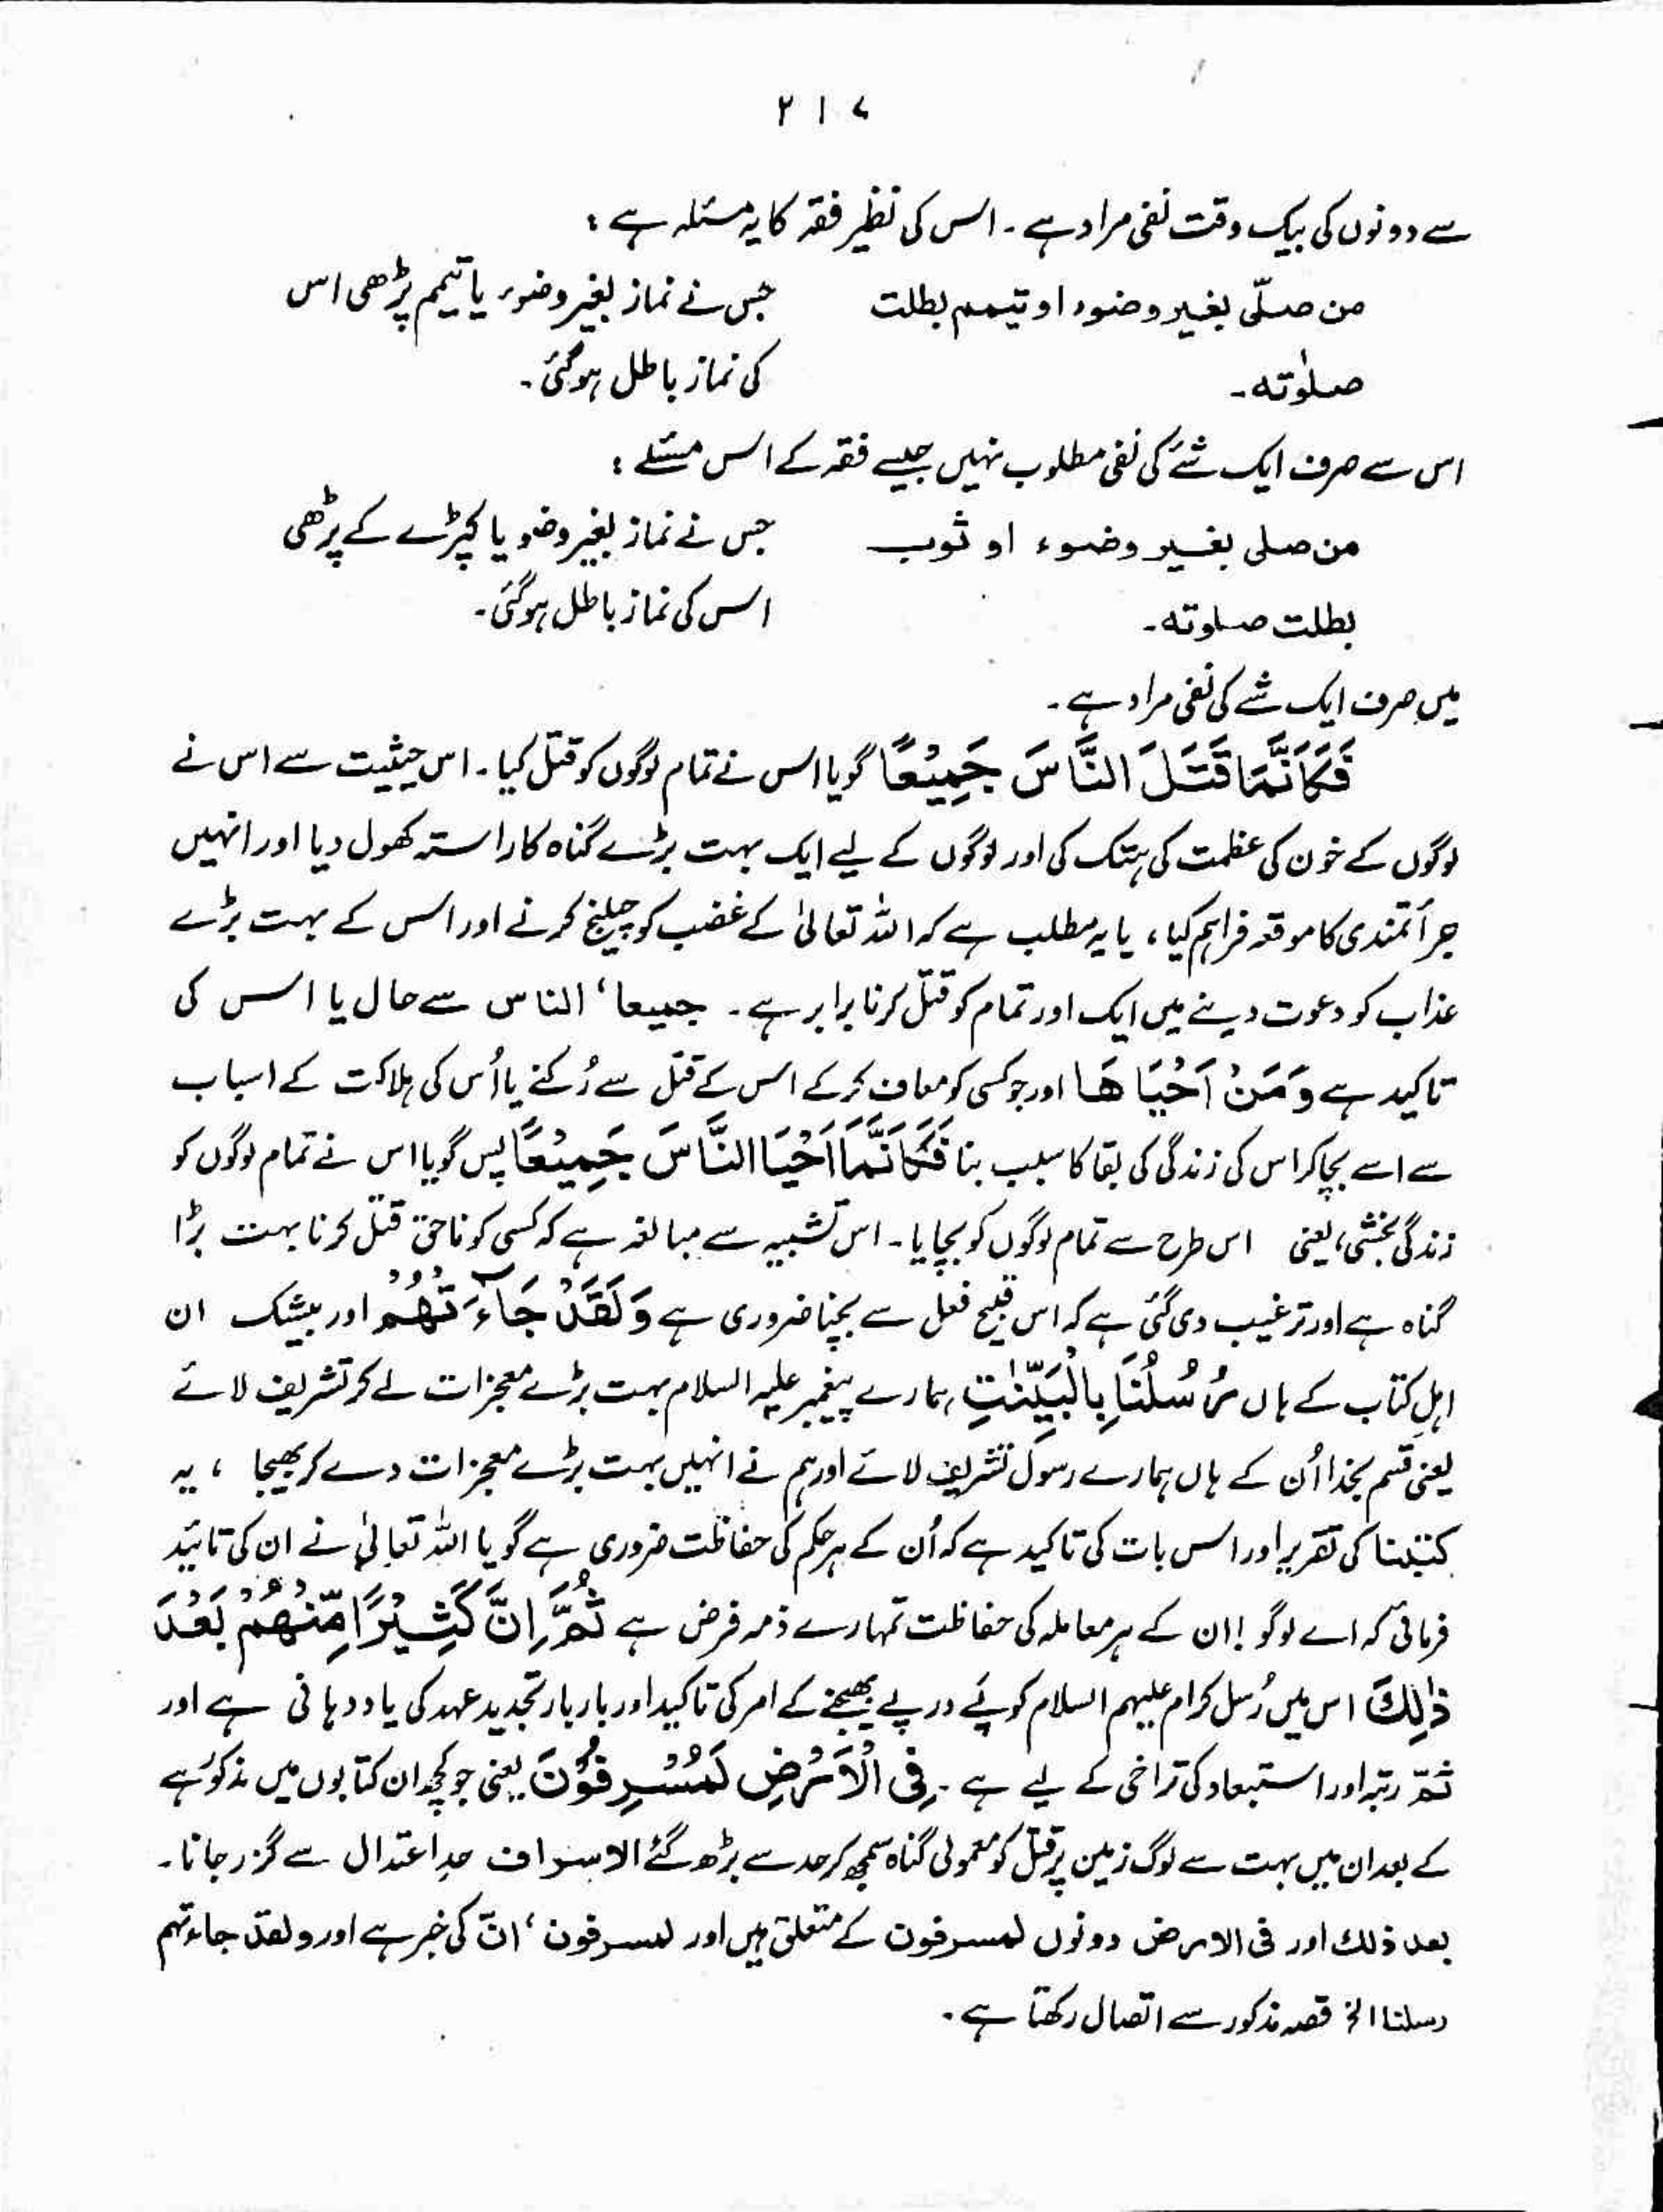 ۲۱۷
سے دونوں کی بیک وقت نفی مراد ہے۔ اس کی نظیر فقہ کا یہ مسئلہ ہے:
من صلّی بغیر وضوء او تیمم بطلت جس نے نماز بغیر وضوء یا تیمم پڑھی اس
صلوٰتہ۔ کی نماز باطل ہوگئی۔
اس سے صرف ایک شئے کی نفی مطلوب نہیں جیسے فقہ کے اس مسئلے:
من صلی بغیر وضوء او ثوب جس نے نماز بغیر وضو یا کپڑے کے پڑھی
بطلت صلوتہ۔ اس کی نماز باطل ہوگئی۔
میں صرف ایک شے کی نفی مراد ہے۔
فَكَاَنَّمَا قَتَلَ النَّاسَ جَمِيْعًا گویا اس نے تمام لوگوں کو قتل کیا۔ اس حیثیت سے اس نے
لوگوں کے خون کی عظمت کی ہتک کی اور لوگوں کے لیے ایک بہت بڑے گناہ کا راستہ کھول دیا اور انہیں
جرأتمندی کا موقعہ فراہم کیا، یا یہ مطلب ہے کہ اللہ تعالیٰ کے غضب کو چیلنج کرنے اور اس کے بہت بڑے
عذاب کو دعوت دینے میں ایک اور تمام کو قتل کرنا برابر ہے۔ جمیعا، الناس سے حال یا اس کی
تاکید ہے وَمَنْ اَحْيَاهَا اور جو کسی کو معاف کرکے اس کے قتل سے رُکنے یا اُس کی ہلاکت کے اسباب
سے اسے بچا کر اس کی زندگی کی بقا کا سبب بنا فَكَاَنَّمَا اَحْيَا النَّاسَ جَمِيْعًا پس گویا اس نے تمام لوگوں کو
زندگی بخشی، یعنی اس طرح سے تمام لوگوں کو بچایا۔ اس تشبیہ سے مبالغہ ہے کہ کسی کو ناحق قتل کرنا بہت بڑا
گناہ ہے اور ترغیب دی گئی ہے کہ اس قبیح فعل سے بچنا ضروری ہے وَلَقَدْ جَآءَتْهُمْ اور بیشک ان
اہل کتاب کے ہاں رُسُلُنَا بِالْبَيِّنٰتِ ہمارے پیغمبر علیہ السلام بہت بڑے معجزات لے کر تشریف لائے
یعنی قسم بخدا اُن کے ہاں ہمارے رسول تشریف لائے اور ہم نے انہیں بہت بڑے معجزات دے کر بھیجا، یہ
کتبنا کی تقریر اور اس بات کی تاکید ہے کہ اُن کے ہر حکم کی حفاظت ضروری ہے گویا اللہ تعالیٰ نے ان کی تائید
فرمائی کہ اے لوگو! ان کے ہر معاملہ کی حفاظت تمہارے ذمہ فرض ہے ثُمَّ اِنَّ كَثِيْرًا مِّنْهُمْ بَعْدَ
ذٰلِكَ اس میں رُسل کرام علیہم السلام کو پے در پے بھیجنے کے امر کی تاکید اور بار بار تجدید عہد کی یاد دہانی ہے اور
ثمّ رتبہ اور استبعاد کی تراخی کے لیے ہے۔ فِی الْاَرْضِ لَمُسْرِفُوْنَ یعنی جو کچھ ان کتابوں میں مذکور ہے
کے بعد ان میں بہت سے لوگ زمین پر قتل کو معمولی گناہ سمجھ کر حد سے بڑھ گئے الاسراف حدِ اعتدال سے گزر جانا۔
بعد ذلك اور فی الارض دونوں لمسرفون کے متعلق ہیں اور لمسرفون، انّ کی خبر ہے اور ولقد جاءتهم
رسلنا الخ قصہ مذکور سے اتصال رکھتا ہے۔